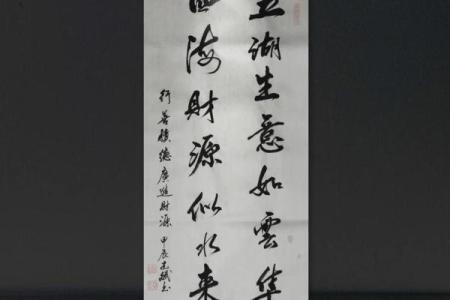 五湖生意如雲集
四海財源似水来
行善積德廣進財源 甲辰 书